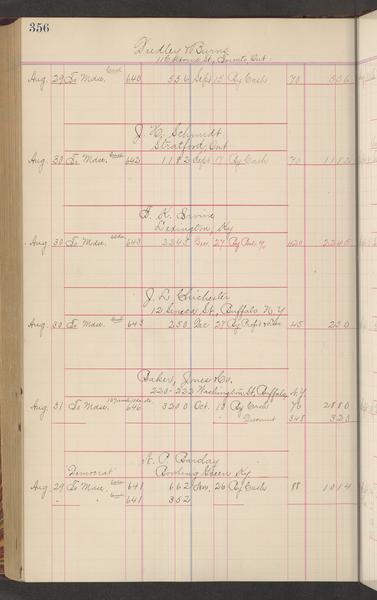 356
Dudley & Burns
St., Toronto, Ont.
Aug. 29 To Mdse. 640 556 Sept 15 By Cash 70 556
J. H. Schmidt
Stratford, Ont
Aug. 30 To Mdse. 642 1192 Sept 17 By Cash 70 1192
K. Irvine
Lexington, Ky
Aug. 30 To Mdse. 643 2245 Dec. 27 By 420 2245
J. L. Chichester
12 Seneca St., Buffalo N.Y.
Aug. 30 To Mdse. 643 250 Dec 27 By Profit & Loss 45 250
Baker, Jones & Co.
220-222 Washington St., Buffalo, N.Y.
Aug. 31 To Mdse. 646 3200 Oct. 18 By Cash 76 2880
" Discount 348 320
A. P. Barclay
Democrat Bowling Green Ky
Aug. 29 To Mdse. 641 662 Nov. 26 By Cash 88 1014
641 352